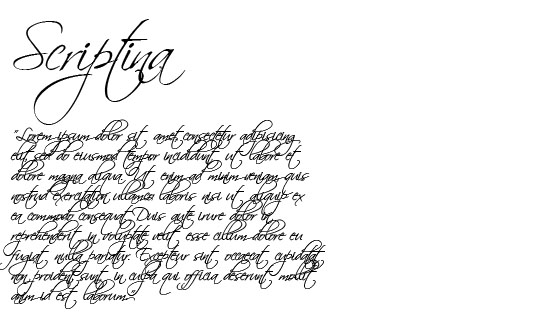 Scriptina
"Lorem ipsum dolor sit amet, consectetur adipisicing
elit, sed do eiusmod tempor incididunt ut labore et
dolore magna aliqua. Ut enim ad minim veniam, quis
nostrud exercitation ullamco laboris nisi ut aliquip ex
ea commodo consequat. Duis aute irure dolor in
reprehenderit in voluptate velit esse cillum dolore eu
fugiat nulla pariatur. Excepteur sint occaecat cupidatat
non proident, sunt in culpa qui officia deserunt mollit
anim id est laborum."